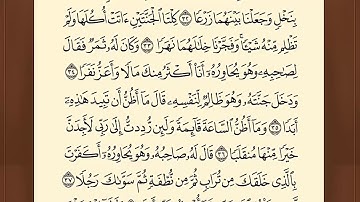 بِنَخْلٍ وَجَعَلْنَا بَيْنَهُمَا زَرْعًا ٣٢ كِلْتَا ٱلْجَنَّتَيْنِ ءَاتَتْ أُكُلَهَا وَلَمْ
تَظْلِم مِّنْهُ شَيْـًٔا وَفَجَّرْنَا خِلَـٰلَهُمَا نَهَرًا ٣٣ وَكَانَ لَهُۥ ثَمَرٌ فَقَالَ
لِصَـٰحِبِهِۦ وَهُوَ يُحَاوِرُهُۥٓ أَنَا۠ أَكْثَرُ مِنكَ مَالًا وَأَعَزُّ نَفَرًا ٣٤
وَدَخَلَ جَنَّتَهُۥ وَهُوَ ظَالِمٌ لِّنَفْسِهِۦ قَالَ مَآ أَظُنُّ أَن تَبِيدَ هَـٰذِهِۦٓ
أَبَدًا ٣٥ وَمَآ أَظُنُّ ٱلسَّاعَةَ قَآئِمَةً وَلَئِن رُّدِدتُّ إِلَىٰ رَبِّى لَأَجِدَنَّ
خَيْرًا مِّنْهَا مُنقَلَبًا ٣٦ قَالَ لَهُۥ صَاحِبُهُۥ وَهُوَ يُحَاوِرُهُۥٓ أَكَفَرْتَ
بِٱلَّذِى خَلَقَكَ مِن تُرَابٍ ثُمَّ مِن نُّطْفَةٍ ثُمَّ سَوَّىٰكَ رَجُلًا ٣٧